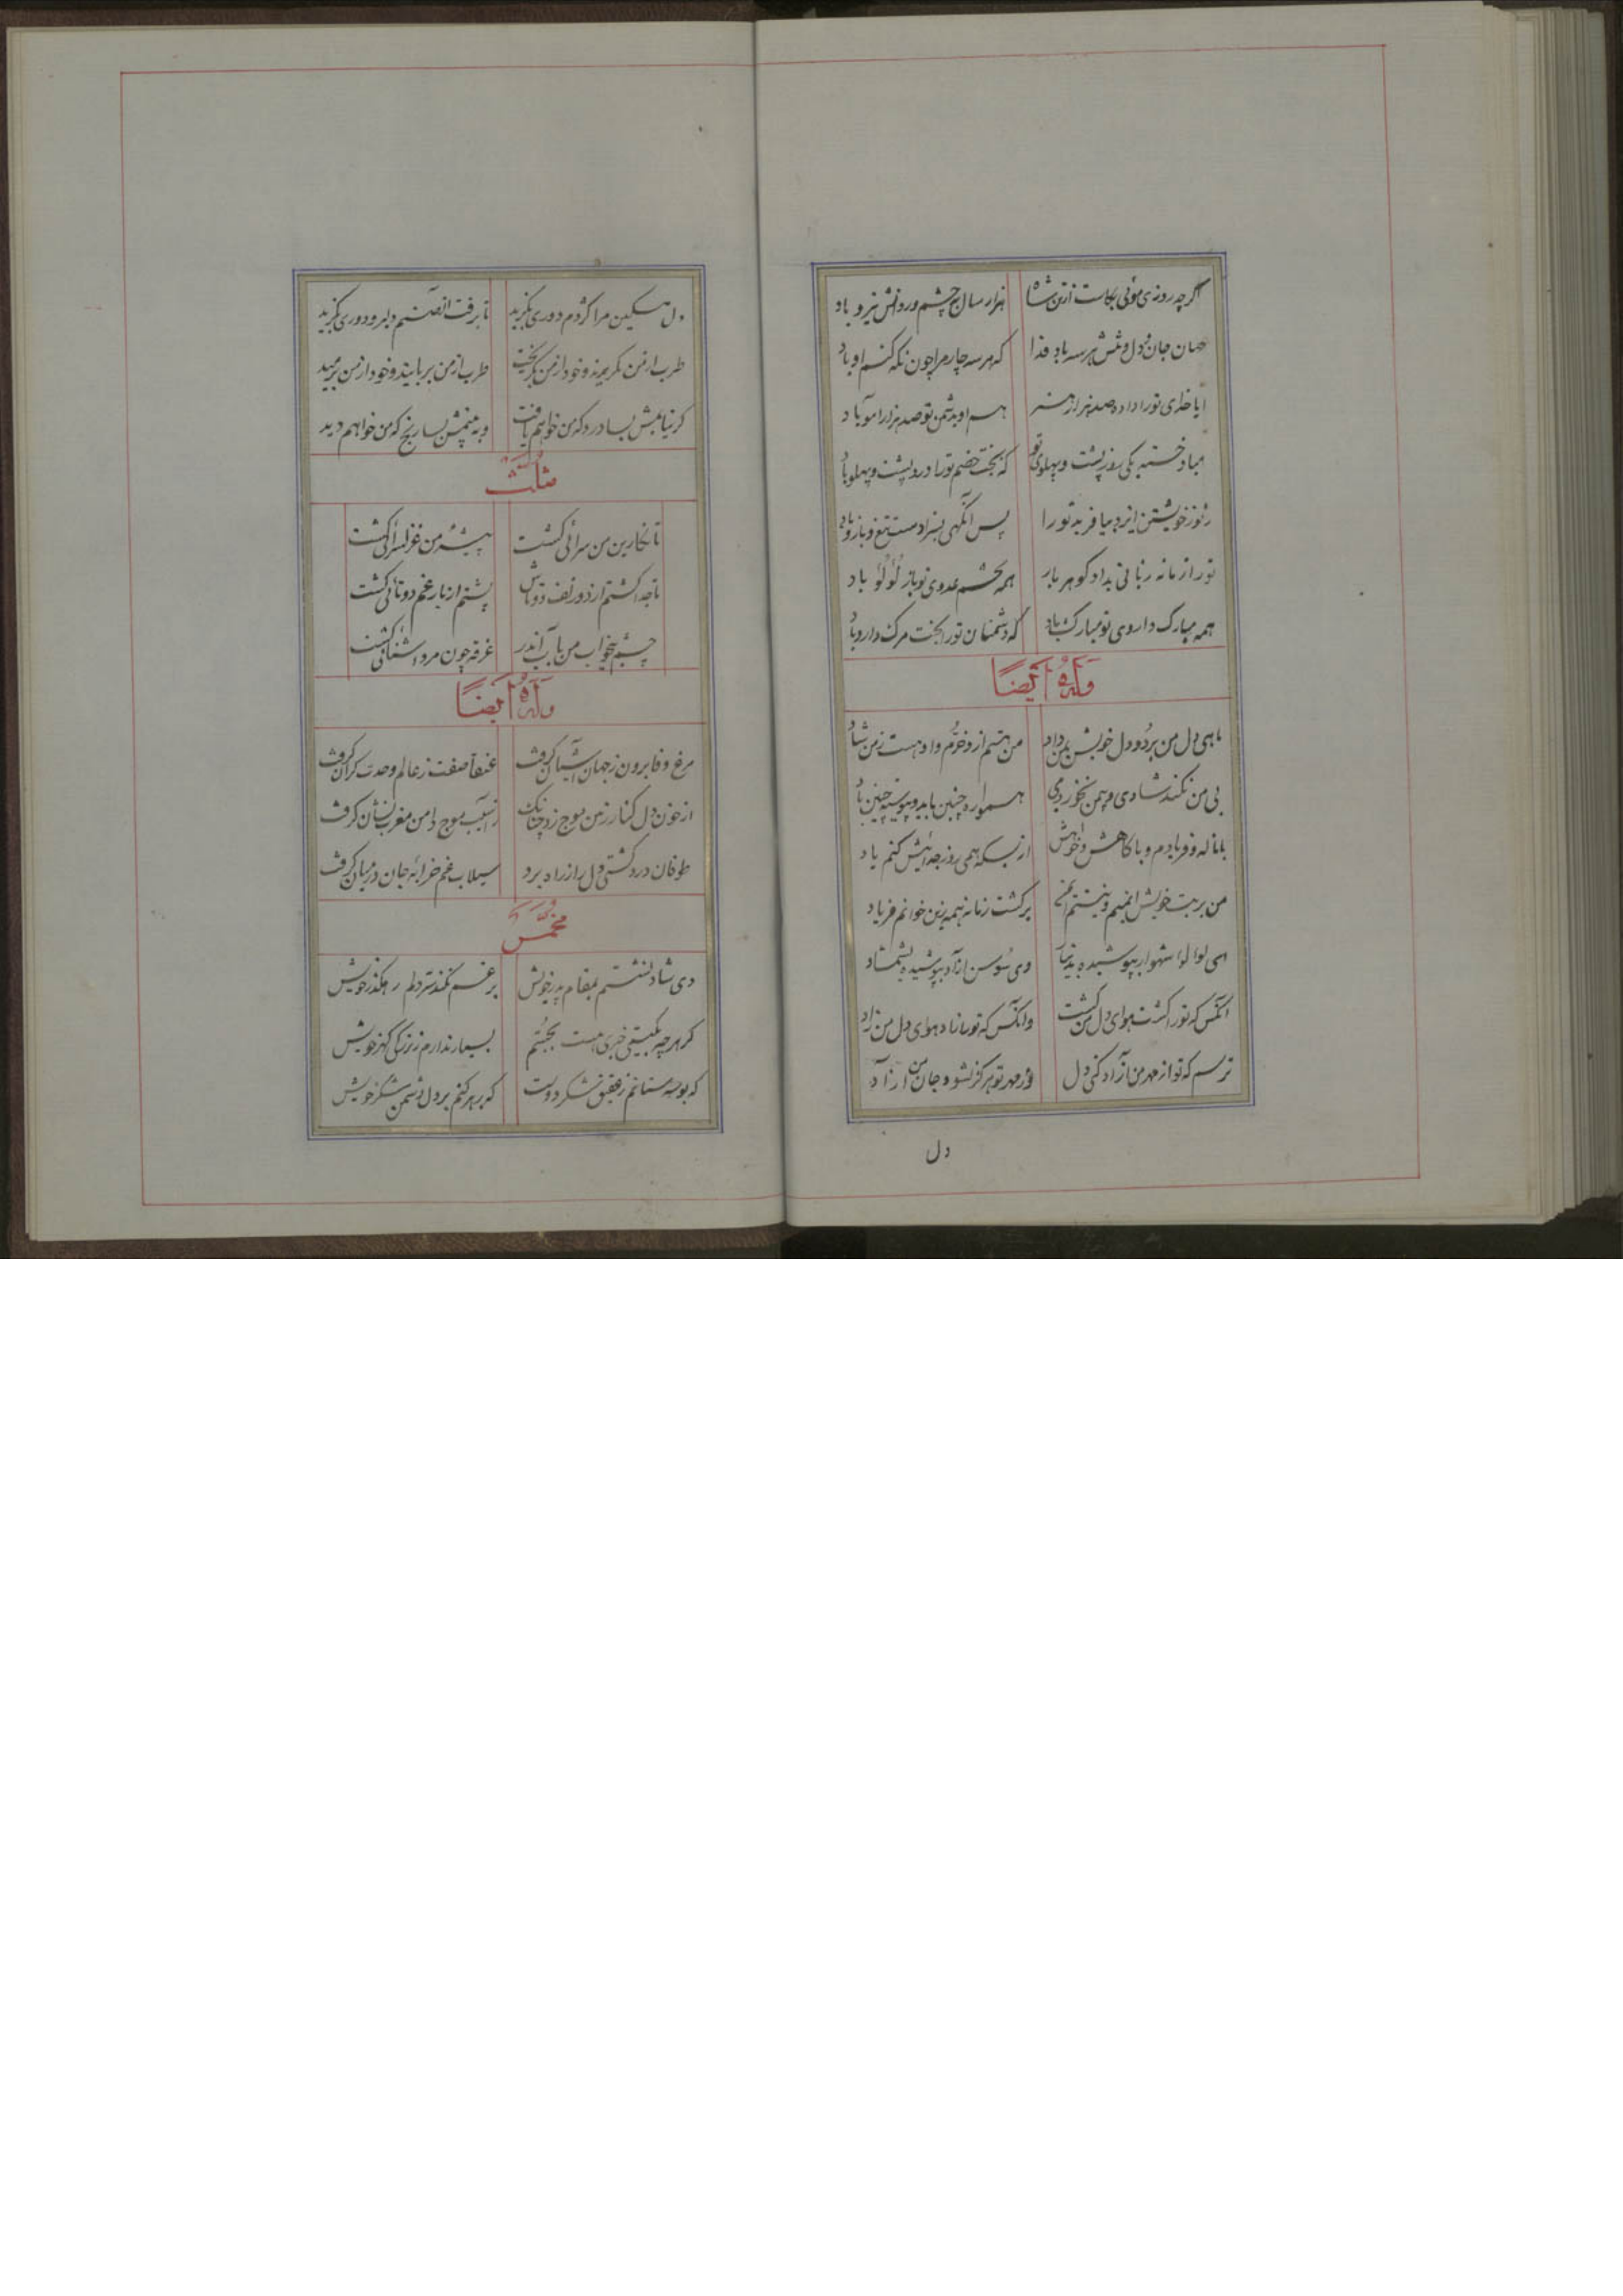 اگرچه روزی موئی بکاست از تن شاه هزار سال بچشم و روانش نیرو باد
جهان جان و دل و تنش هر سه باد فدا که هر سه چار مرا چون نگه کنم او باد
ایا خدای تورا داده صد هزار هنر هم او بدشمن تو صد هزار آهو باد
مباد خسته یکی روز پشت و پهلوی تو که بخت خصم تورا درد پشت و پهلو باد
ز نور خویشتن ایزد بیافرید تورا پس آنگهی بسزا دست تیغ و بازو داد
تورا زمانه زبانی بداد گوهر بار همه بچشم عدوی تو باز لؤلؤ باد
همه مبارک داروی تو مبارک باد که دشمنان تورا بخت مرگ دارو باد
وله ایضاً
ماهی دل من برد و دل خویش بمن داد من هستم ازو خرم و او هست ز من شاد
بی من نکند شادی و بی من نخورد می همواره چنین باید و پیوسته چنین باد
با ناله و فریادم و با کاهش و خواهش از بسکه همی روز جدائیش کنم یاد
من بر بت خویش ایمنم و نیستم ایمن بر گشت زمانه همه زین خوانم فریاد
ای لؤلؤ شهوار بپوشیده به بیجاده وی سوسن آزاد بپوشیده بشمشاد
آنکس که تورا کشت هوای دل من کشت وانکس که تورا زاد هوای دل من زاد
ترسم که تو از مهر من آزاد کنی دل وز مهر تو هرگز نشود جان من آزاد
دل
دل مسکین مرا کژدم دوری بگزید تا برفت آن صنم دلبر و دوری بگزید
طرب از من بگریزند و خود از من بگریخت طرب از من برمایند و خود از من برمید
گر نیابمش بسا درد که من خواهم یافت ور نبینمش بسا رنج که من خواهم دید
مثلث
تا نگارین من سرائی گشت پیشه من غزلسرائی گشت
تا جدا گشتم از دو زلف دوتاش پشتم از بار غم دوتائی گشت
چشم بیخواب من بآب اندر غرقه چون مرد آشنائی گشت
وله ایضاً
مرغ وفا برون ز جهان آشیان گرفت عنقا صفت ز عالم وحدت کران گرفت
از خون دل کنار زمن موج زد چنانک ز آسیب موج دامن مغرب نشان گرفت
طوفان درد کشتی دل را ز راه برد سیلاب غم خرابه جان در میان گرفت
مخمس
دی شاد نشستم بمقام پدر خویش بر غم نکند تر دلم رهگذر خویش
گر هر چه بگیتی خبری هست بجستم بسیار ندارم ز بزرگی گهر خویش
که بوسه ستانم ز عقیق شکر دوست که زهر کنم بر دل دشمن شکر خویش